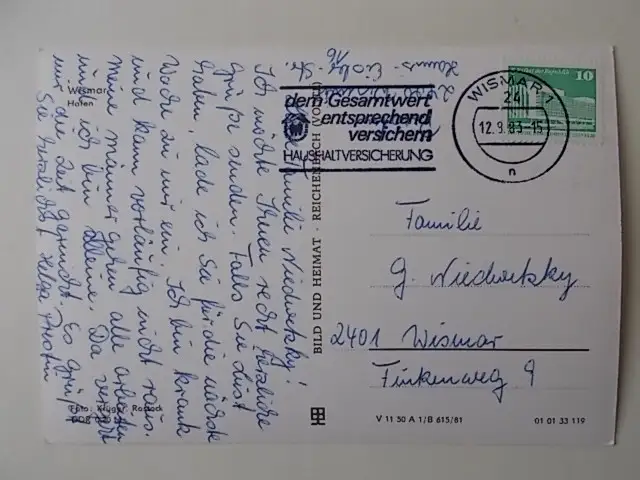 Wismar
Hafen
Liebe Familie Niedwetzky!
Ich möchte Ihnen recht herzliche
Grüße senden. Falls Sie Lust
haben, lade ich Sie für die nächste
Woche zu mir ein. Ich bin krank
und kann vorläufig nicht raus.
Meine Männer gehen alle arbeiten
und ich bin alleine. Da vergeht
mir die Zeit garnicht. Es grüßt
Sie herzlichst Helga
Foto: Krüger, Rostock
BILD UND HEIMAT · REICHENBACH (VOGTL)
dem Gesamtwert
entsprechend
versichern
HAUSHALTVERSICHERUNG
WISMAR 1
24
12.9.83-15
n
10
Familie
G. Niedwetzky
2401 Wismar
Finkenweg 9
V 11 50 A 1/B 615/81
01 01 33 119